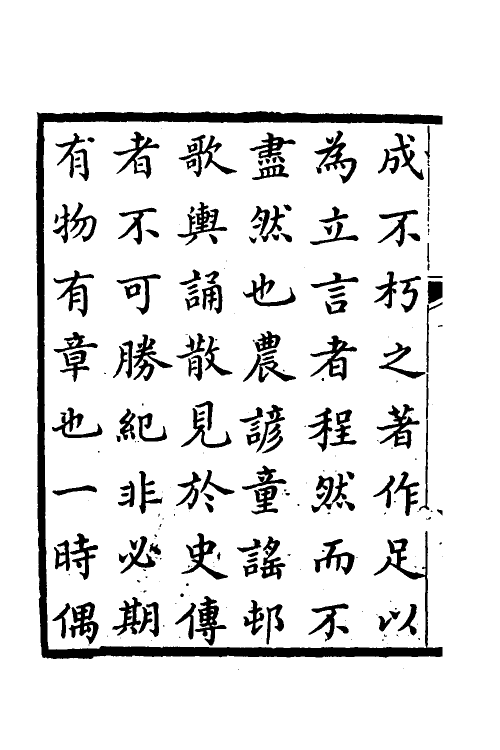 成不朽之著作足以
為立言者程然而不
盡然也農諺童謠邨
歌輿誦散見於史傳
者不可勝紀非必期
有物有章也一時偶